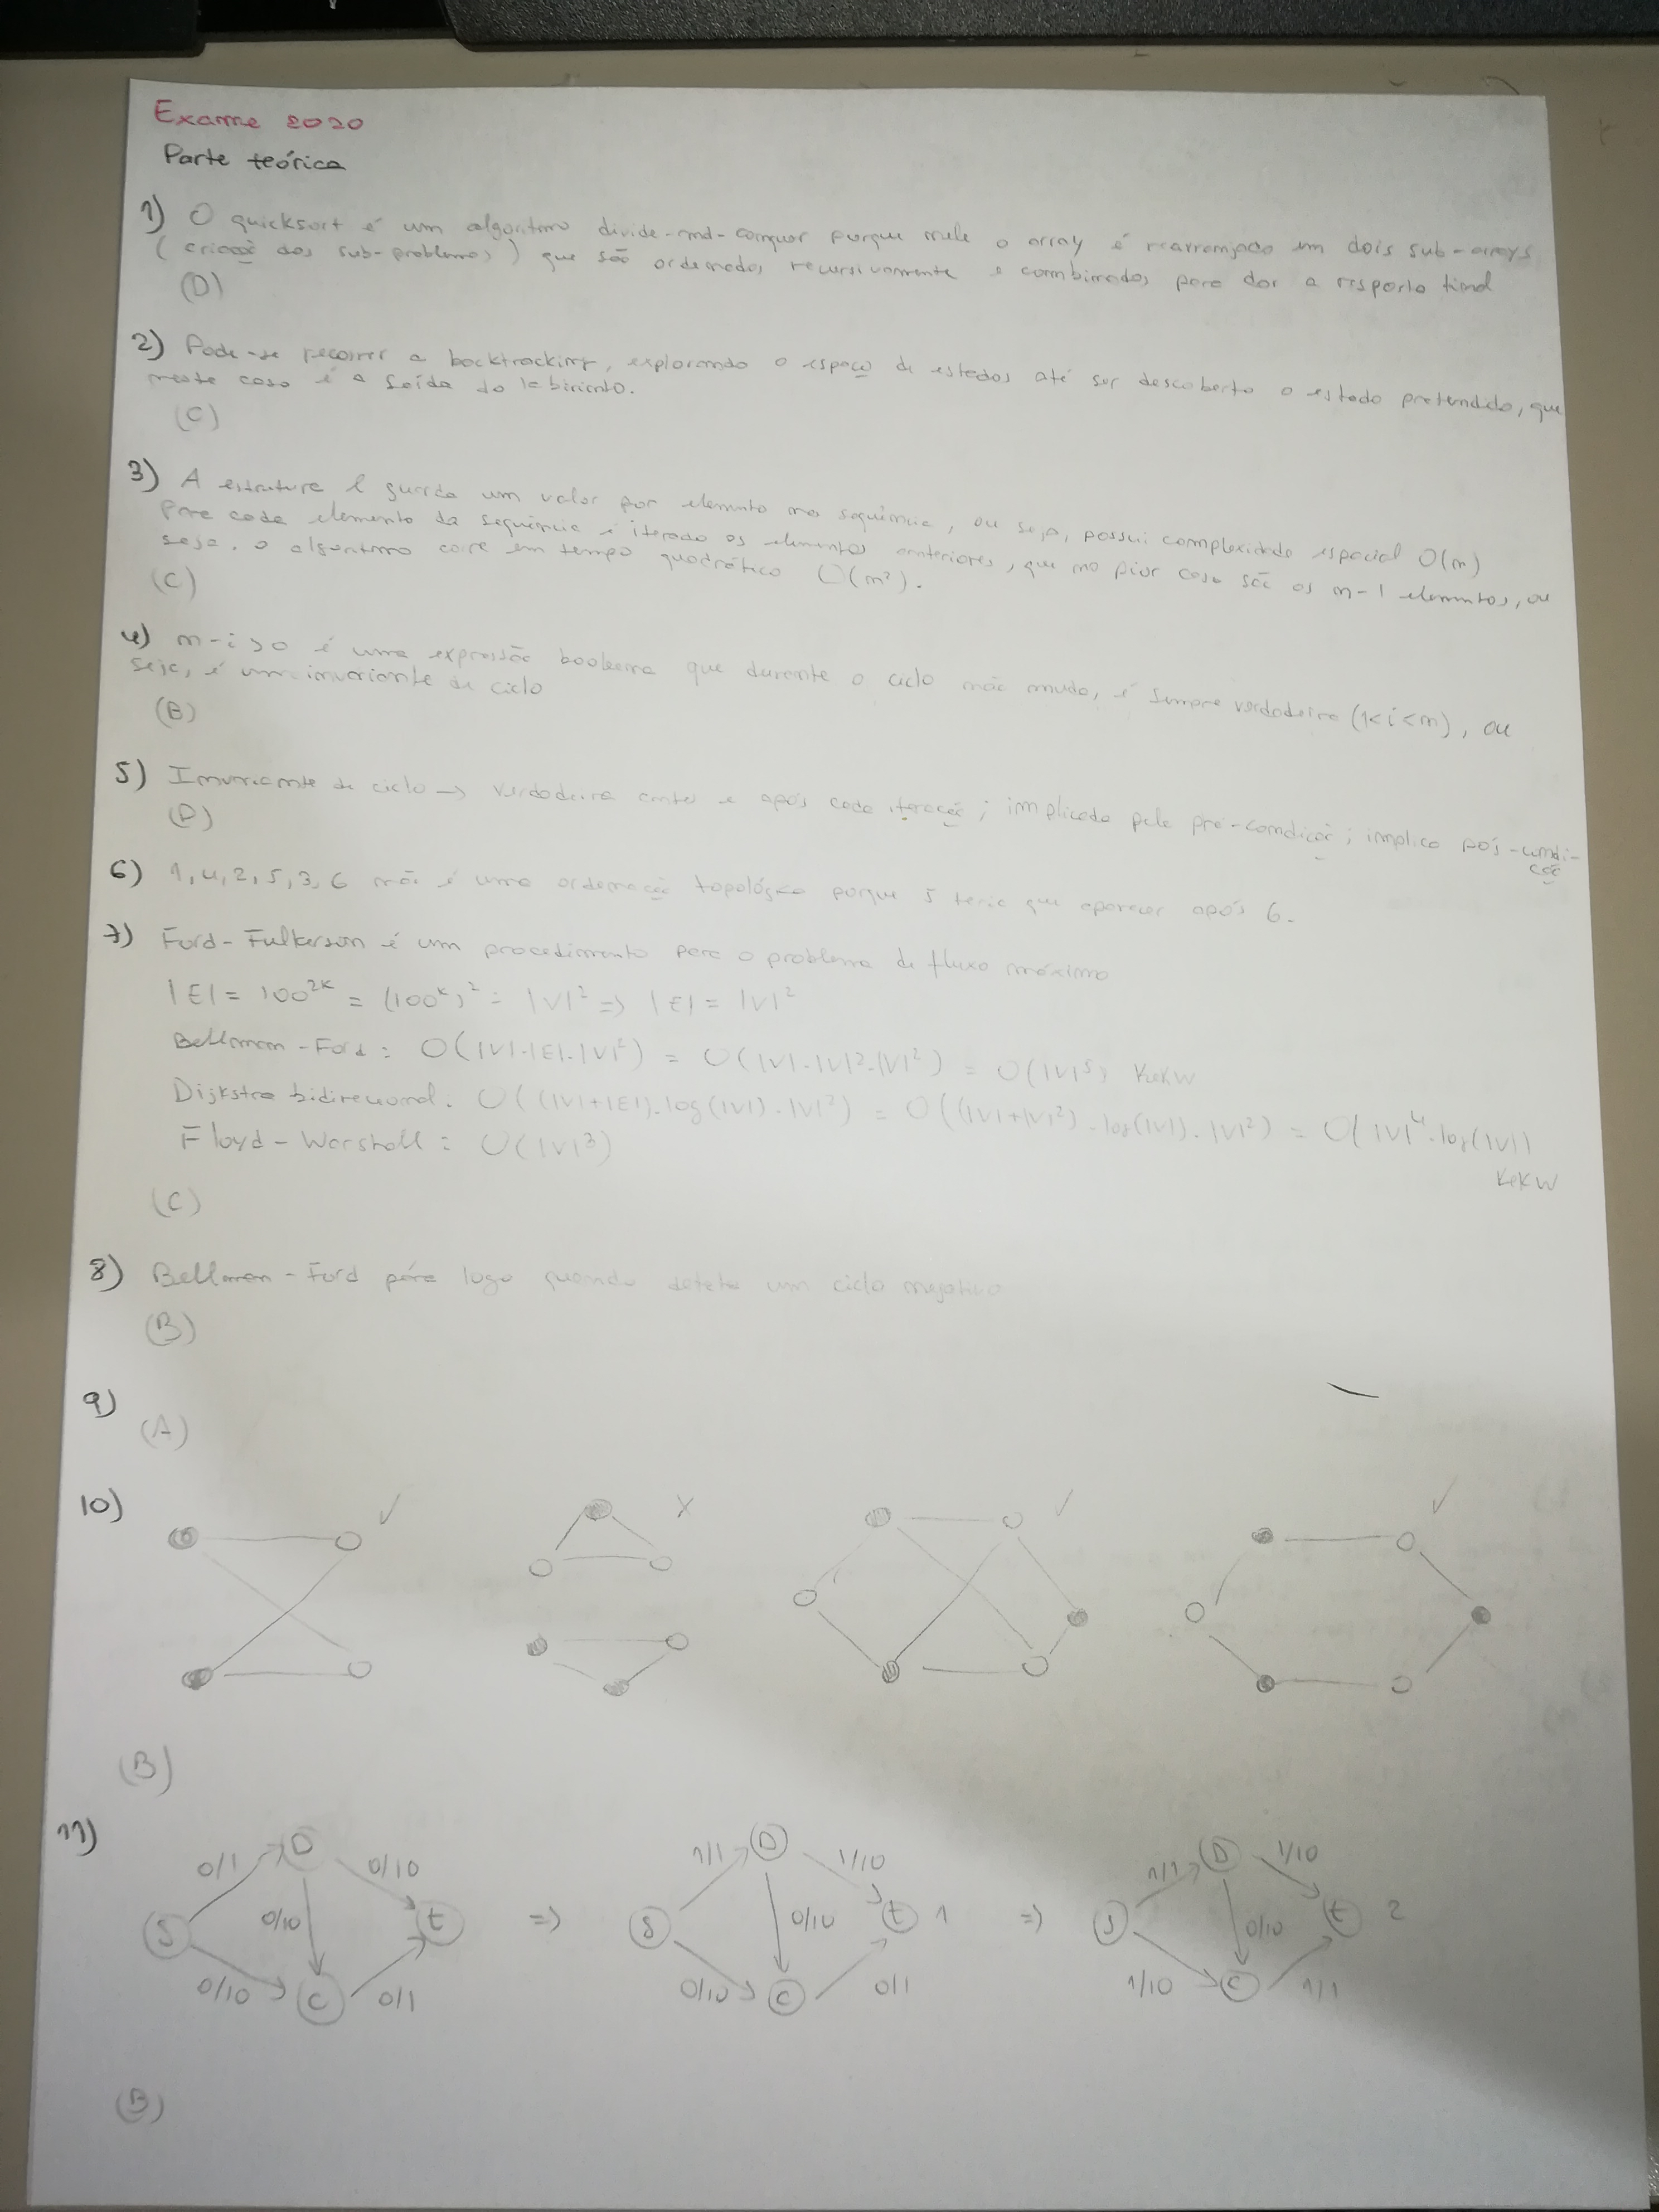 Exame 2020
Parte teórica
1) O quicksort é um algoritmo divide-and-conquer porque nele o array é rearranjado em dois sub-arrays
(criação dos sub-problemas) que são ordenados recursivamente e combinados para dar a resposta final
(D)
2) Pode-se recorrer a backtracking, explorando o espaço de estados até ser descoberto o estado pretendido, que
neste caso é a saída do labirinto.
(C)
3) A estrutura l guarda um valor por elemento na sequência, ou seja, possui complexidade espacial O(n)
Para cada elemento da sequência é iterado os elementos anteriores, que no pior caso são os n-1 elementos, ou
seja, o algoritmo corre em tempo quadrático O(n²).
(C)
4) n-i>0 é uma expressão booleana que durante o ciclo não muda, é sempre verdadeira (1<i<n), ou
seja, é um invariante de ciclo
(B)
5) Invariante de ciclo → verdadeira antes e após cada iteração; implicada pela pré-condição; implica pós-condi-
ção
6) 1, 4, 2, 5, 3, 6 não é uma ordenação topológica porque 5 teria que aparecer após 6.
7) Ford-Fulkerson é um procedimento para o problema de fluxo máximo
|E| = 100^2k = (100^k)² = |V|² => |E| = |V|²
Bellman-Ford: O(|V|.|E|.|V|²) = O(|V|.|V|².|V|²) = O(|V|⁵) KEKW
Dijkstra bidirecional: O((|V|+|E|).log(|V|).|V|²) = O((|V|+|V|²).log(|V|).|V|²) = O(|V|⁴.log(|V|)
KEKW
Floyd-Warshall: O(|V|³)
(C)
8) Bellman-Ford pára logo quando deteta um ciclo negativo
(B)
9)
(A)
10) ✓ X ✓ ✓
(B)
11)
0/1 D 0/10 S 0/10 t 0/10 C 0/1
=>
1/1 D 1/10 S 0/10 t 1 0/10 C 0/1
=>
1/1 D 1/10 S 0/10 t 2 1/10 C 1/1
(B)